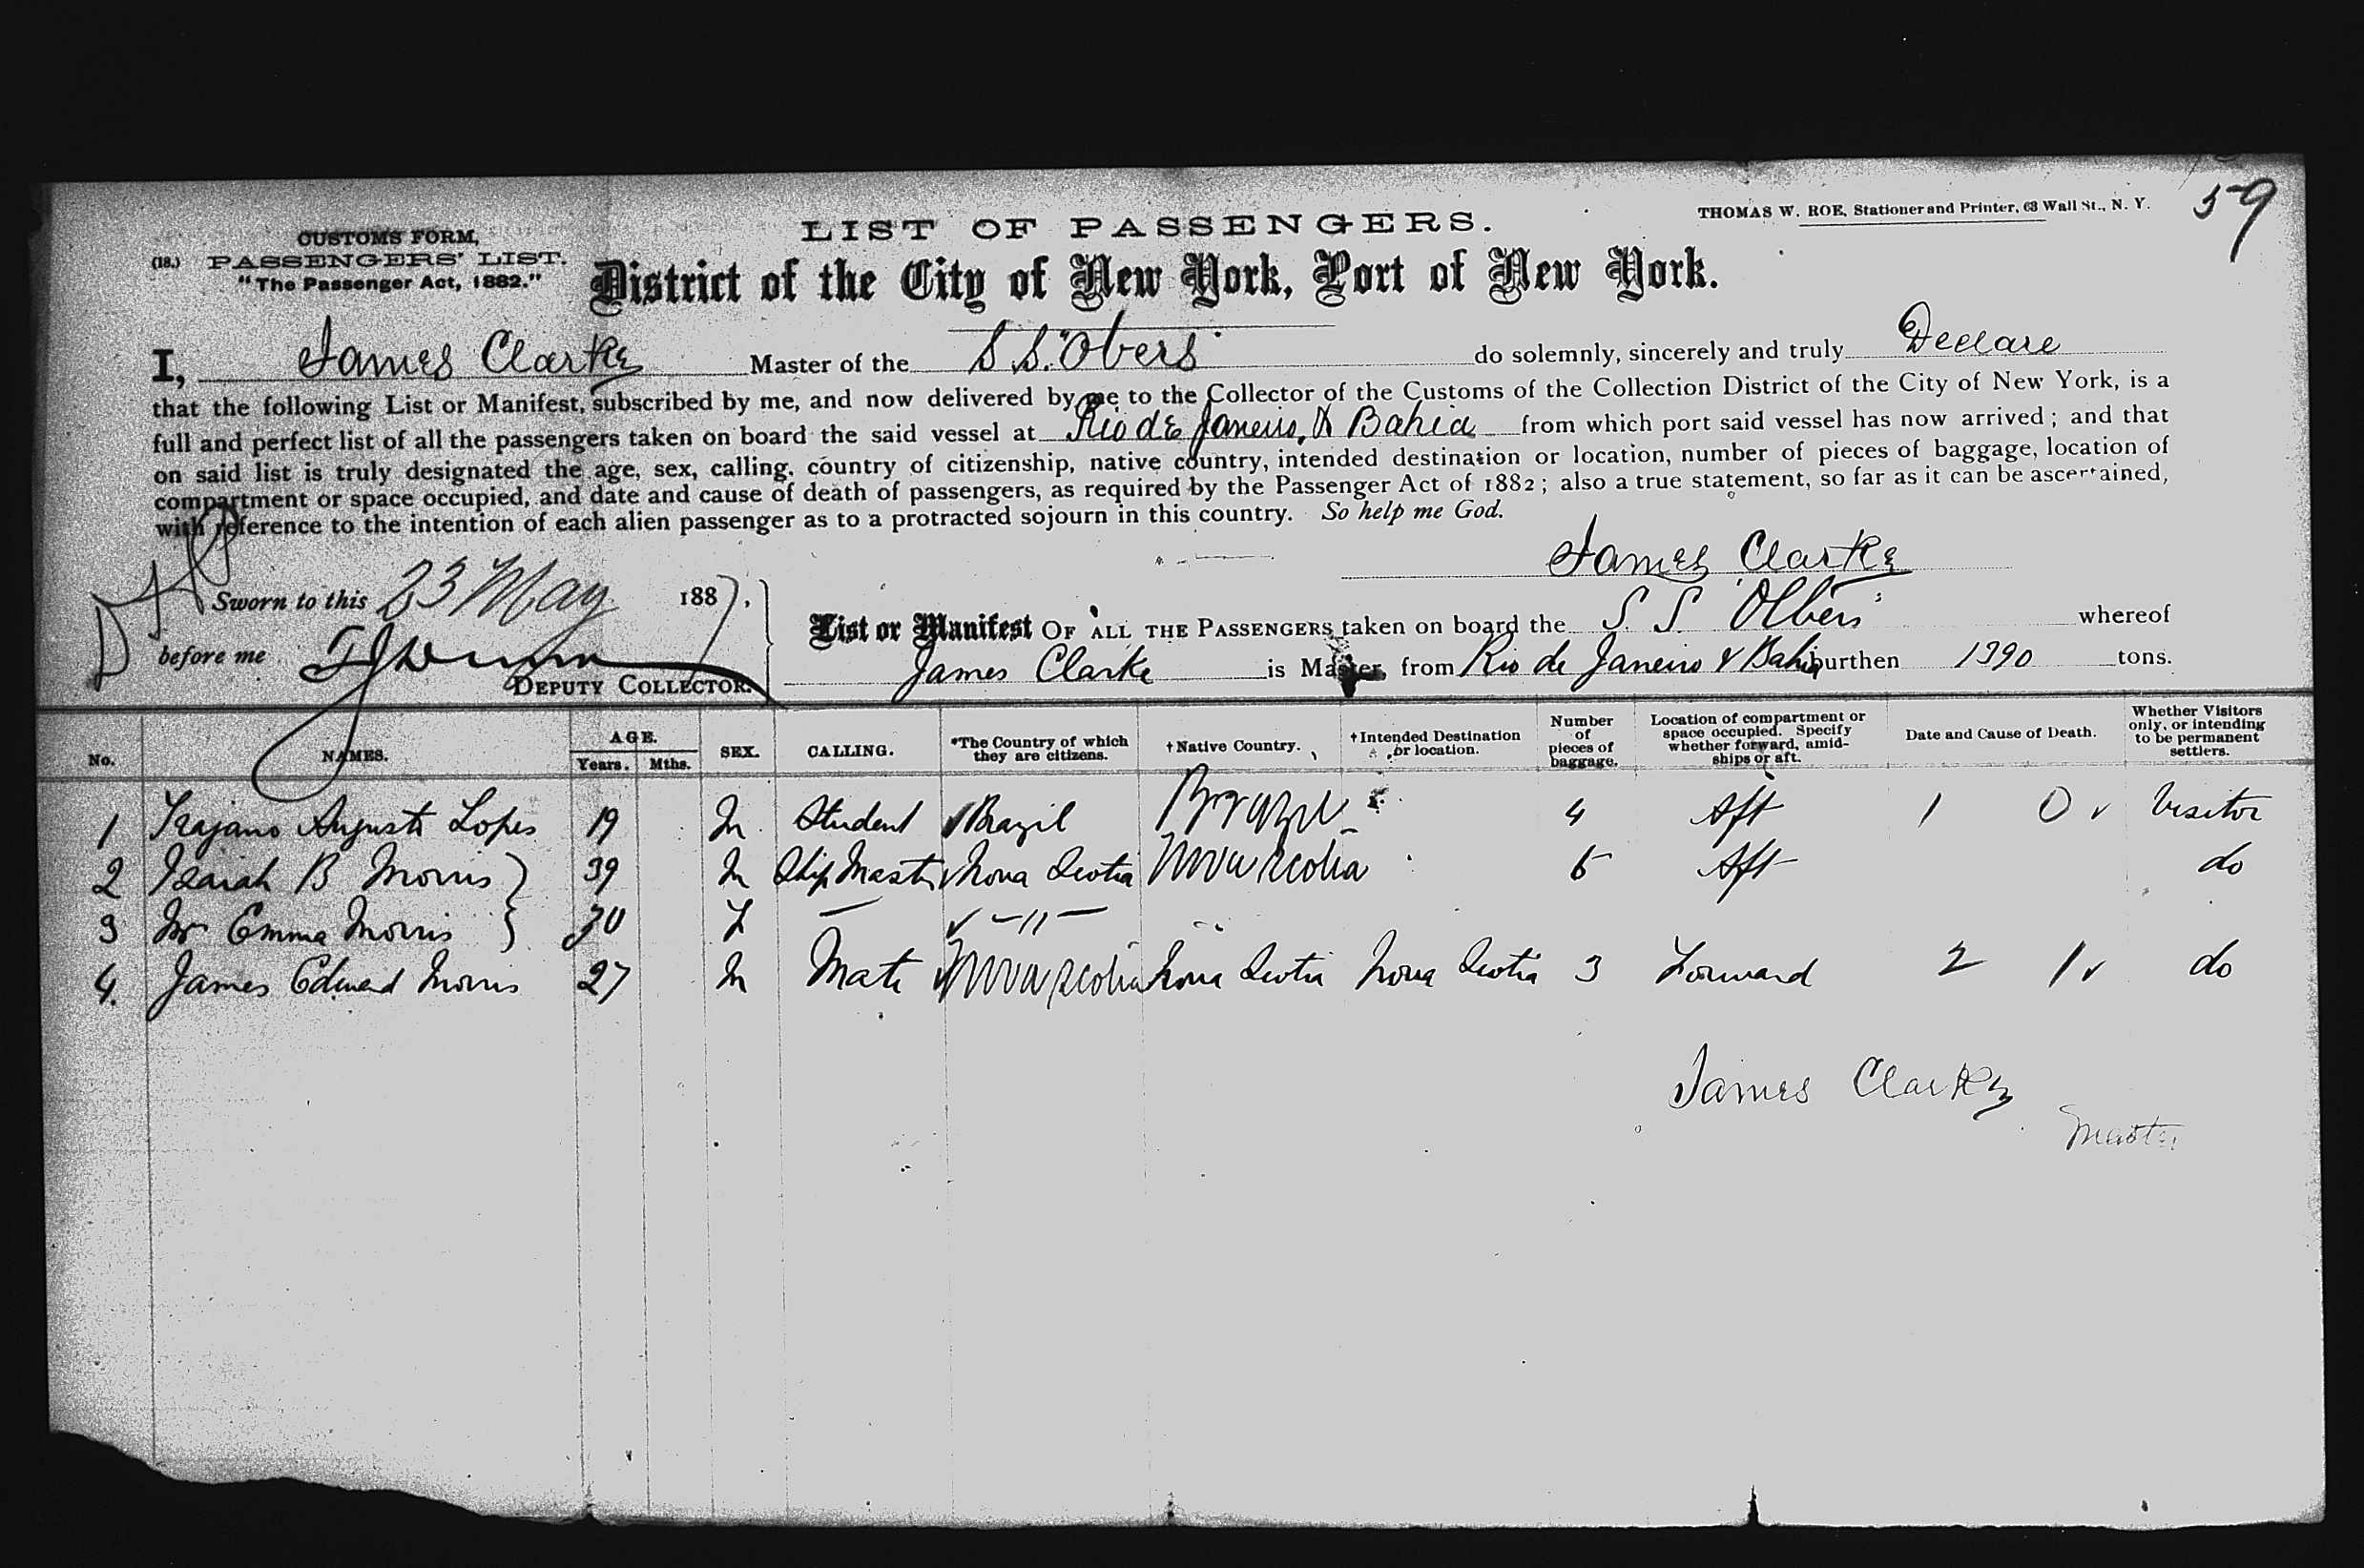 59
THOMAS W. ROE, Stationer and Printer, 63 Wall St., N. Y.
CUSTOMS FORM,
(18.) PASSENGERS' LIST.
"The Passenger Act, 1882."
LIST OF PASSENGERS.
District of the City of New York, Port of New York.
I, James Clarke Master of the S.S. "Olbers" do solemnly, sincerely and truly Declare
that the following List or Manifest, subscribed by me, and now delivered by me to the Collector of the Customs of the Collection District of the City of New York, is a
full and perfect list of all the passengers taken on board the said vessel at Rio de Janeiro, & Bahia from which port said vessel has now arrived; and that
on said list is truly designated the age, sex, calling, country of citizenship, native country, intended destination or location, number of pieces of baggage, location of
compartment or space occupied, and date and cause of death of passengers, as required by the Passenger Act of 1882; also a true statement, so far as it can be ascertained,
with reference to the intention of each alien passenger as to a protracted sojourn in this country. So help me God.
James Clarke
Sworn to this 23 May 1887,
before me
DEPUTY COLLECTOR.
List or Manifest OF ALL THE PASSENGERS taken on board the S. S. "Olbers" whereof
James Clarke is Master, from Rio de Janeiro & Bahia burthen 1390 tons.
No. NAMES. AGE. Years. Mths. SEX. CALLING. *The Country of which they are citizens. †Native Country. †Intended Destination or location. Number of pieces of baggage. Location of compartment or space occupied. Specify whether forward, amidships or aft. Date and Cause of Death. Whether Visitors only, or intending to be permanent settlers.
1 Trajano Augusto Lopes 19 M Student Brazil Brazil 4 Aft 1 0 Visitor
2 Isaiah B Morris 39 M Ship Master Nova Scotia Nova Scotia 5 Aft do
3 Mrs Emma Morris 30 F — — " —
4. James Edward Morris 27 M Mate Nova Scotia Nova Scotia Nova Scotia 3 Forward 2 1 do
James Clarke
Master